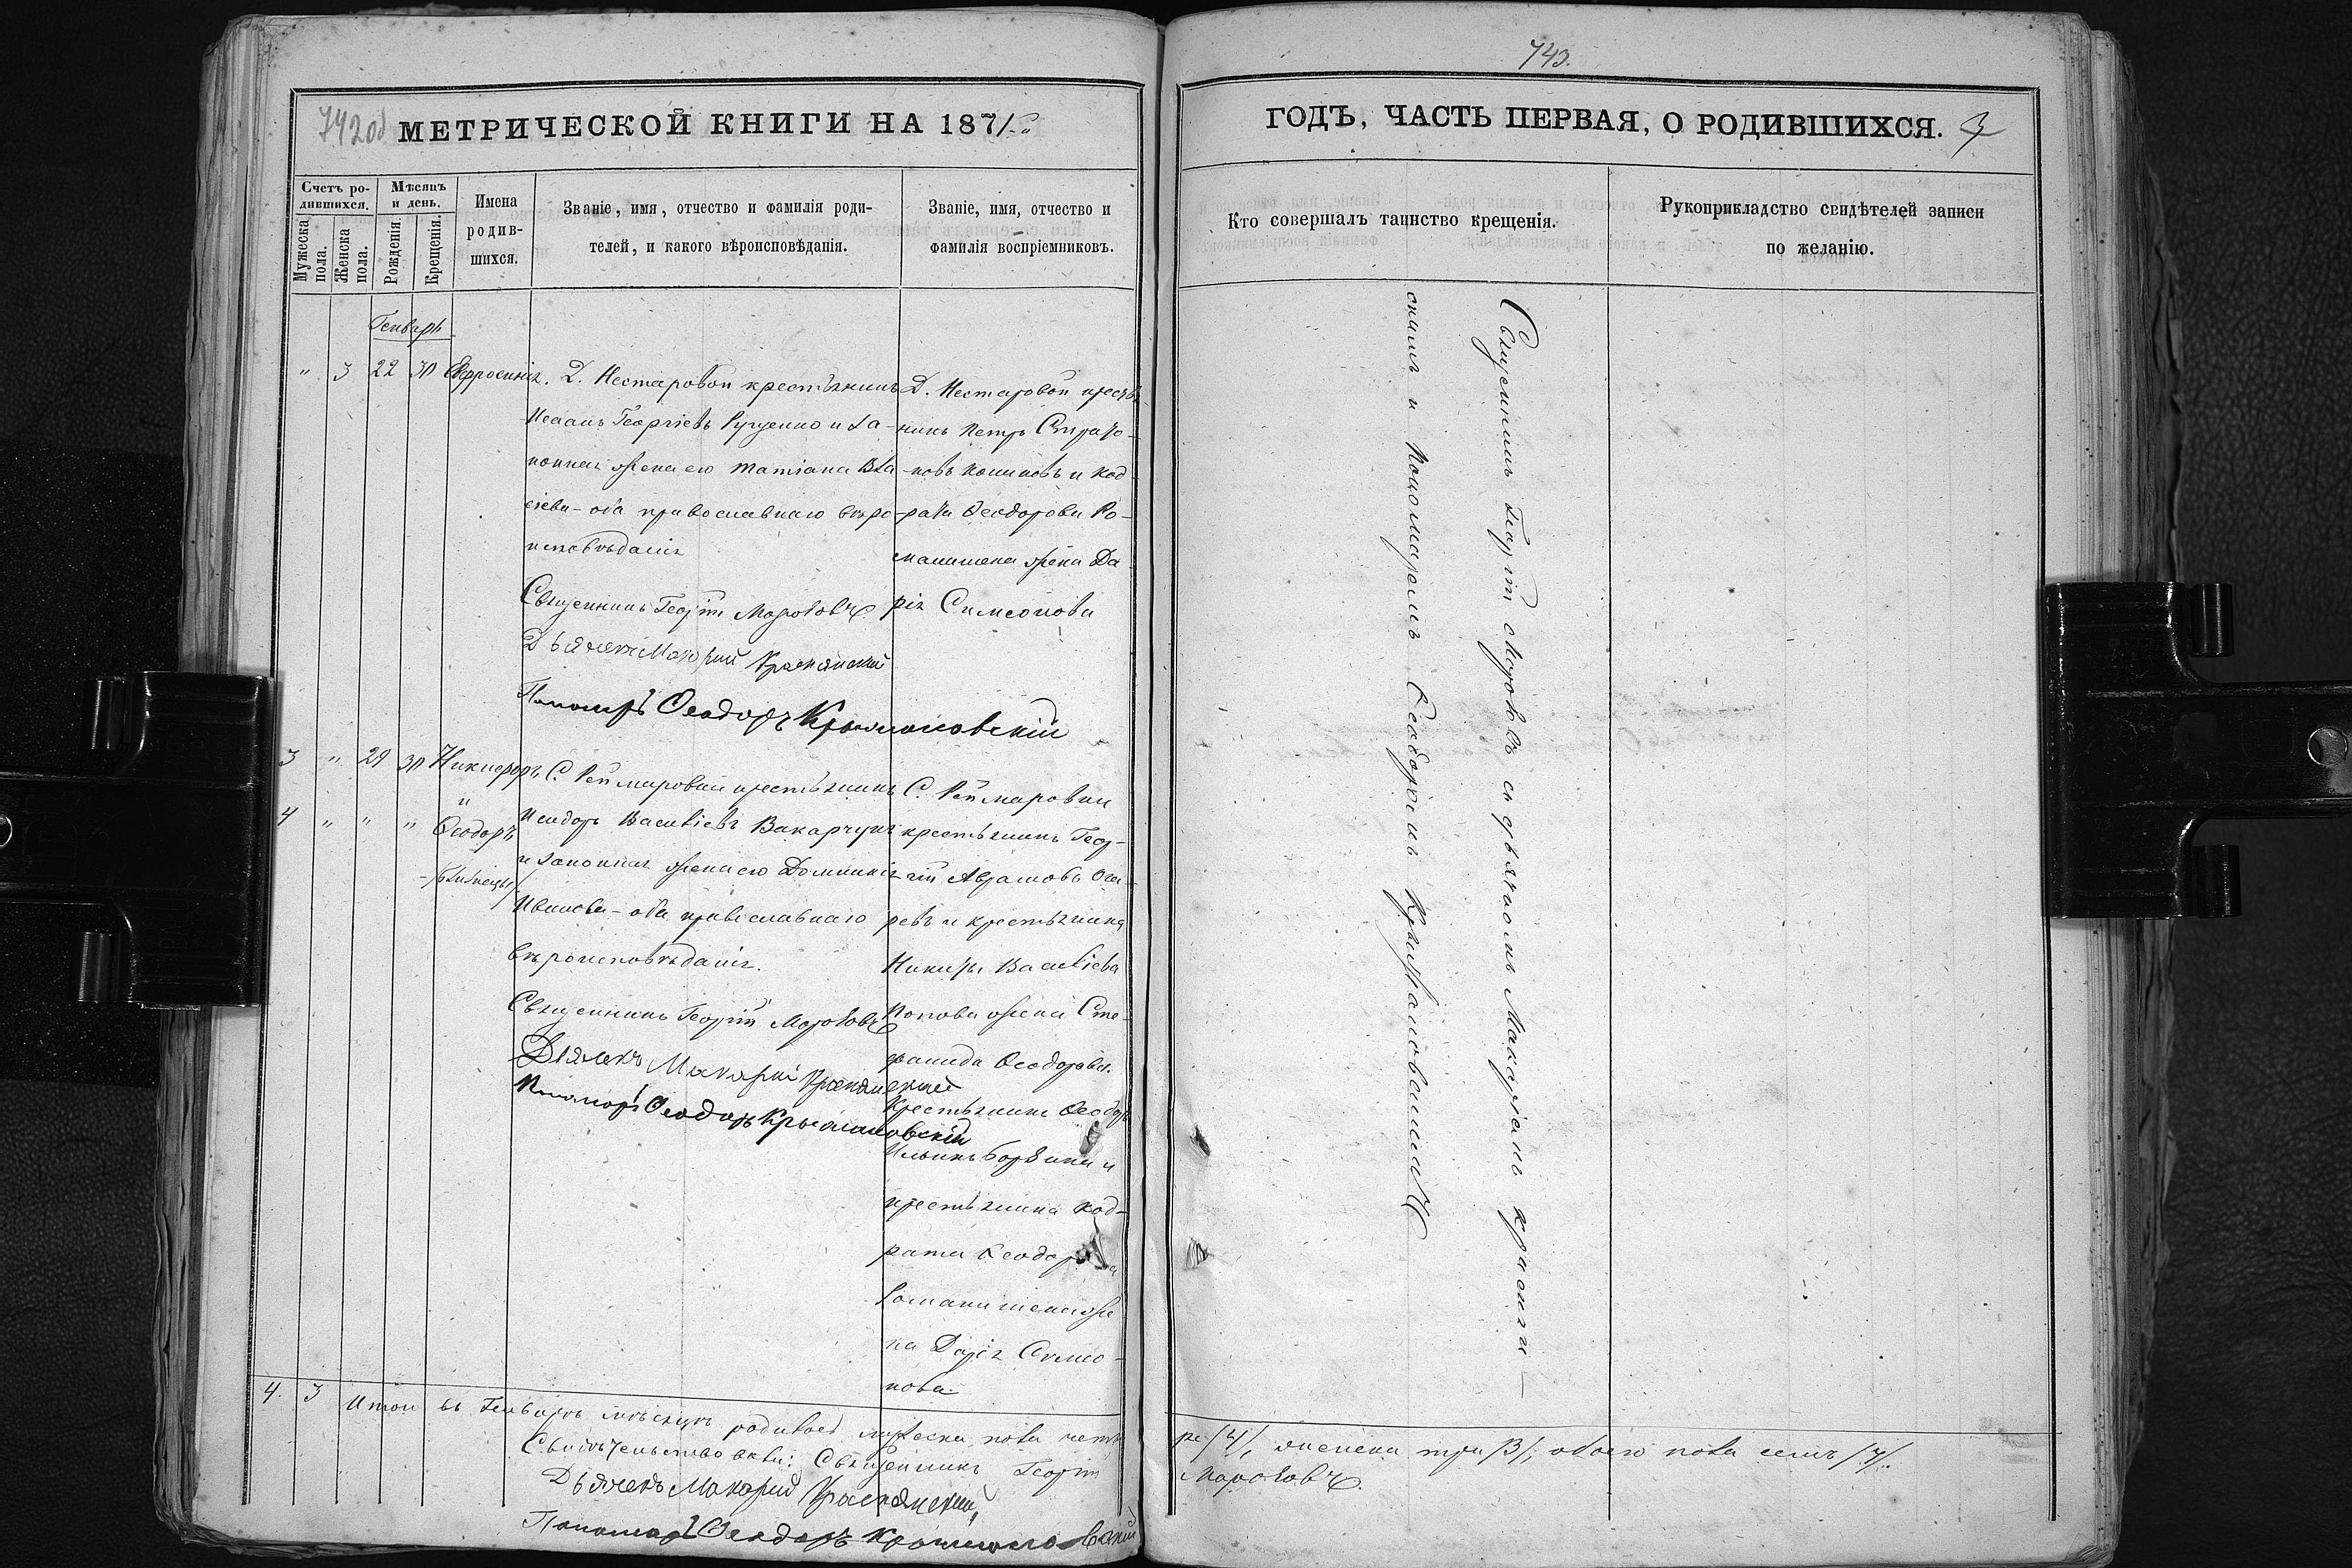 742об
МЕТРИЧЕСКОЙ КНИГИ НА 1871
Счетъ ро-
дившихся.
Мужеска пола.
Женска пола.
Мѣсяцъ
и день.
Рожденія.
Крещенія.
Имена
родив-
шихся.
Званіе, имя, отчество и фамилія роди-
телей, и какого вѣроисповѣданія.
Званіе, имя, отчество и
фамилія воспріемниковъ.
Генварь
" 3 22 30 Евфросинія.
Д. Нестаровой крестьянинъ
Георгіевъ и за-
конная жена его Татіана Вла-
сіева - оба православнаго вѣро
исповѣданія
Священникъ Георгій
Дьячекъ Макарій Краснянскій
Пономарь Ѳеодоръ Крыжановскій
Д. Нестаровой крестья
нинъ Петръ
и Код
рата Ѳеодорова Ро-
манишена жена Да
рія Симеонова
3 " 29 30 Никифоръ
и
4 " " " Ѳеодоръ
/близнецы/
С. Реймаровки крестьянинъ
Васильевъ Вакарчукъ
и законная жена его Домникія
Иванова - оба православнаго
вѣроисповѣданія.
Священникъ Георгій
Дьячекъ Макарій Краснянскій
Пономарь Ѳеодоръ Крыжановскій
С. Реймаровки
крестьянинъ Геор-
гій Аврамовъ
ревъ и крестьянина
Васильева
Попова жена Сте-
фанида Ѳеодорова.
Крестьянинъ Ѳеодоръ
Ильинъ и
крестьянина Код-
рата Ѳеодорова
Романишена же
на Дарія Симео-
нова.
4. 3 Итого въ Генварѣ мѣсяцѣ родилось мужеска пола четы
Свидѣтельствовали: Священникъ Георгій
Дьячекъ Макарій Краснянскій
Пономарь Ѳеодоръ Крыжановскій
743.
ГОДЪ, ЧАСТЬ ПЕРВАЯ, О РОДИВШИХСЯ.
Кто совершалъ таинство крещенія.
Рукоприкладство свидѣтелей записи
по желанію.
Священникъ Георгій съ дьячкомъ Макаріемъ Красня-
скимъ и Пономаремъ Ѳеодоромъ Крыжановскимъ
ре /4/, женска три /3/, обоего пола семь /7/.